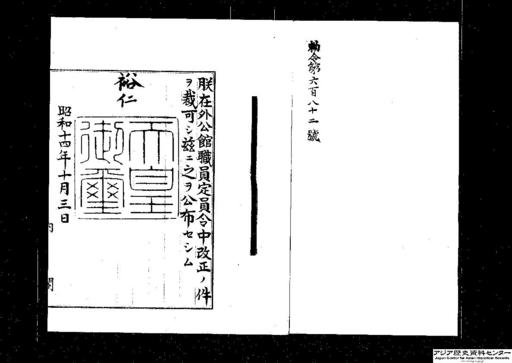 勅令第六百八十二號
朕在外公館職員定員令中改正ノ件
ヲ裁可シ茲ニ之ヲ公布セシム
裕仁
天皇
御璽
昭和十四年十月三日
内閣
アジア歴史資料センター
Japan Center for Asian Historical Records